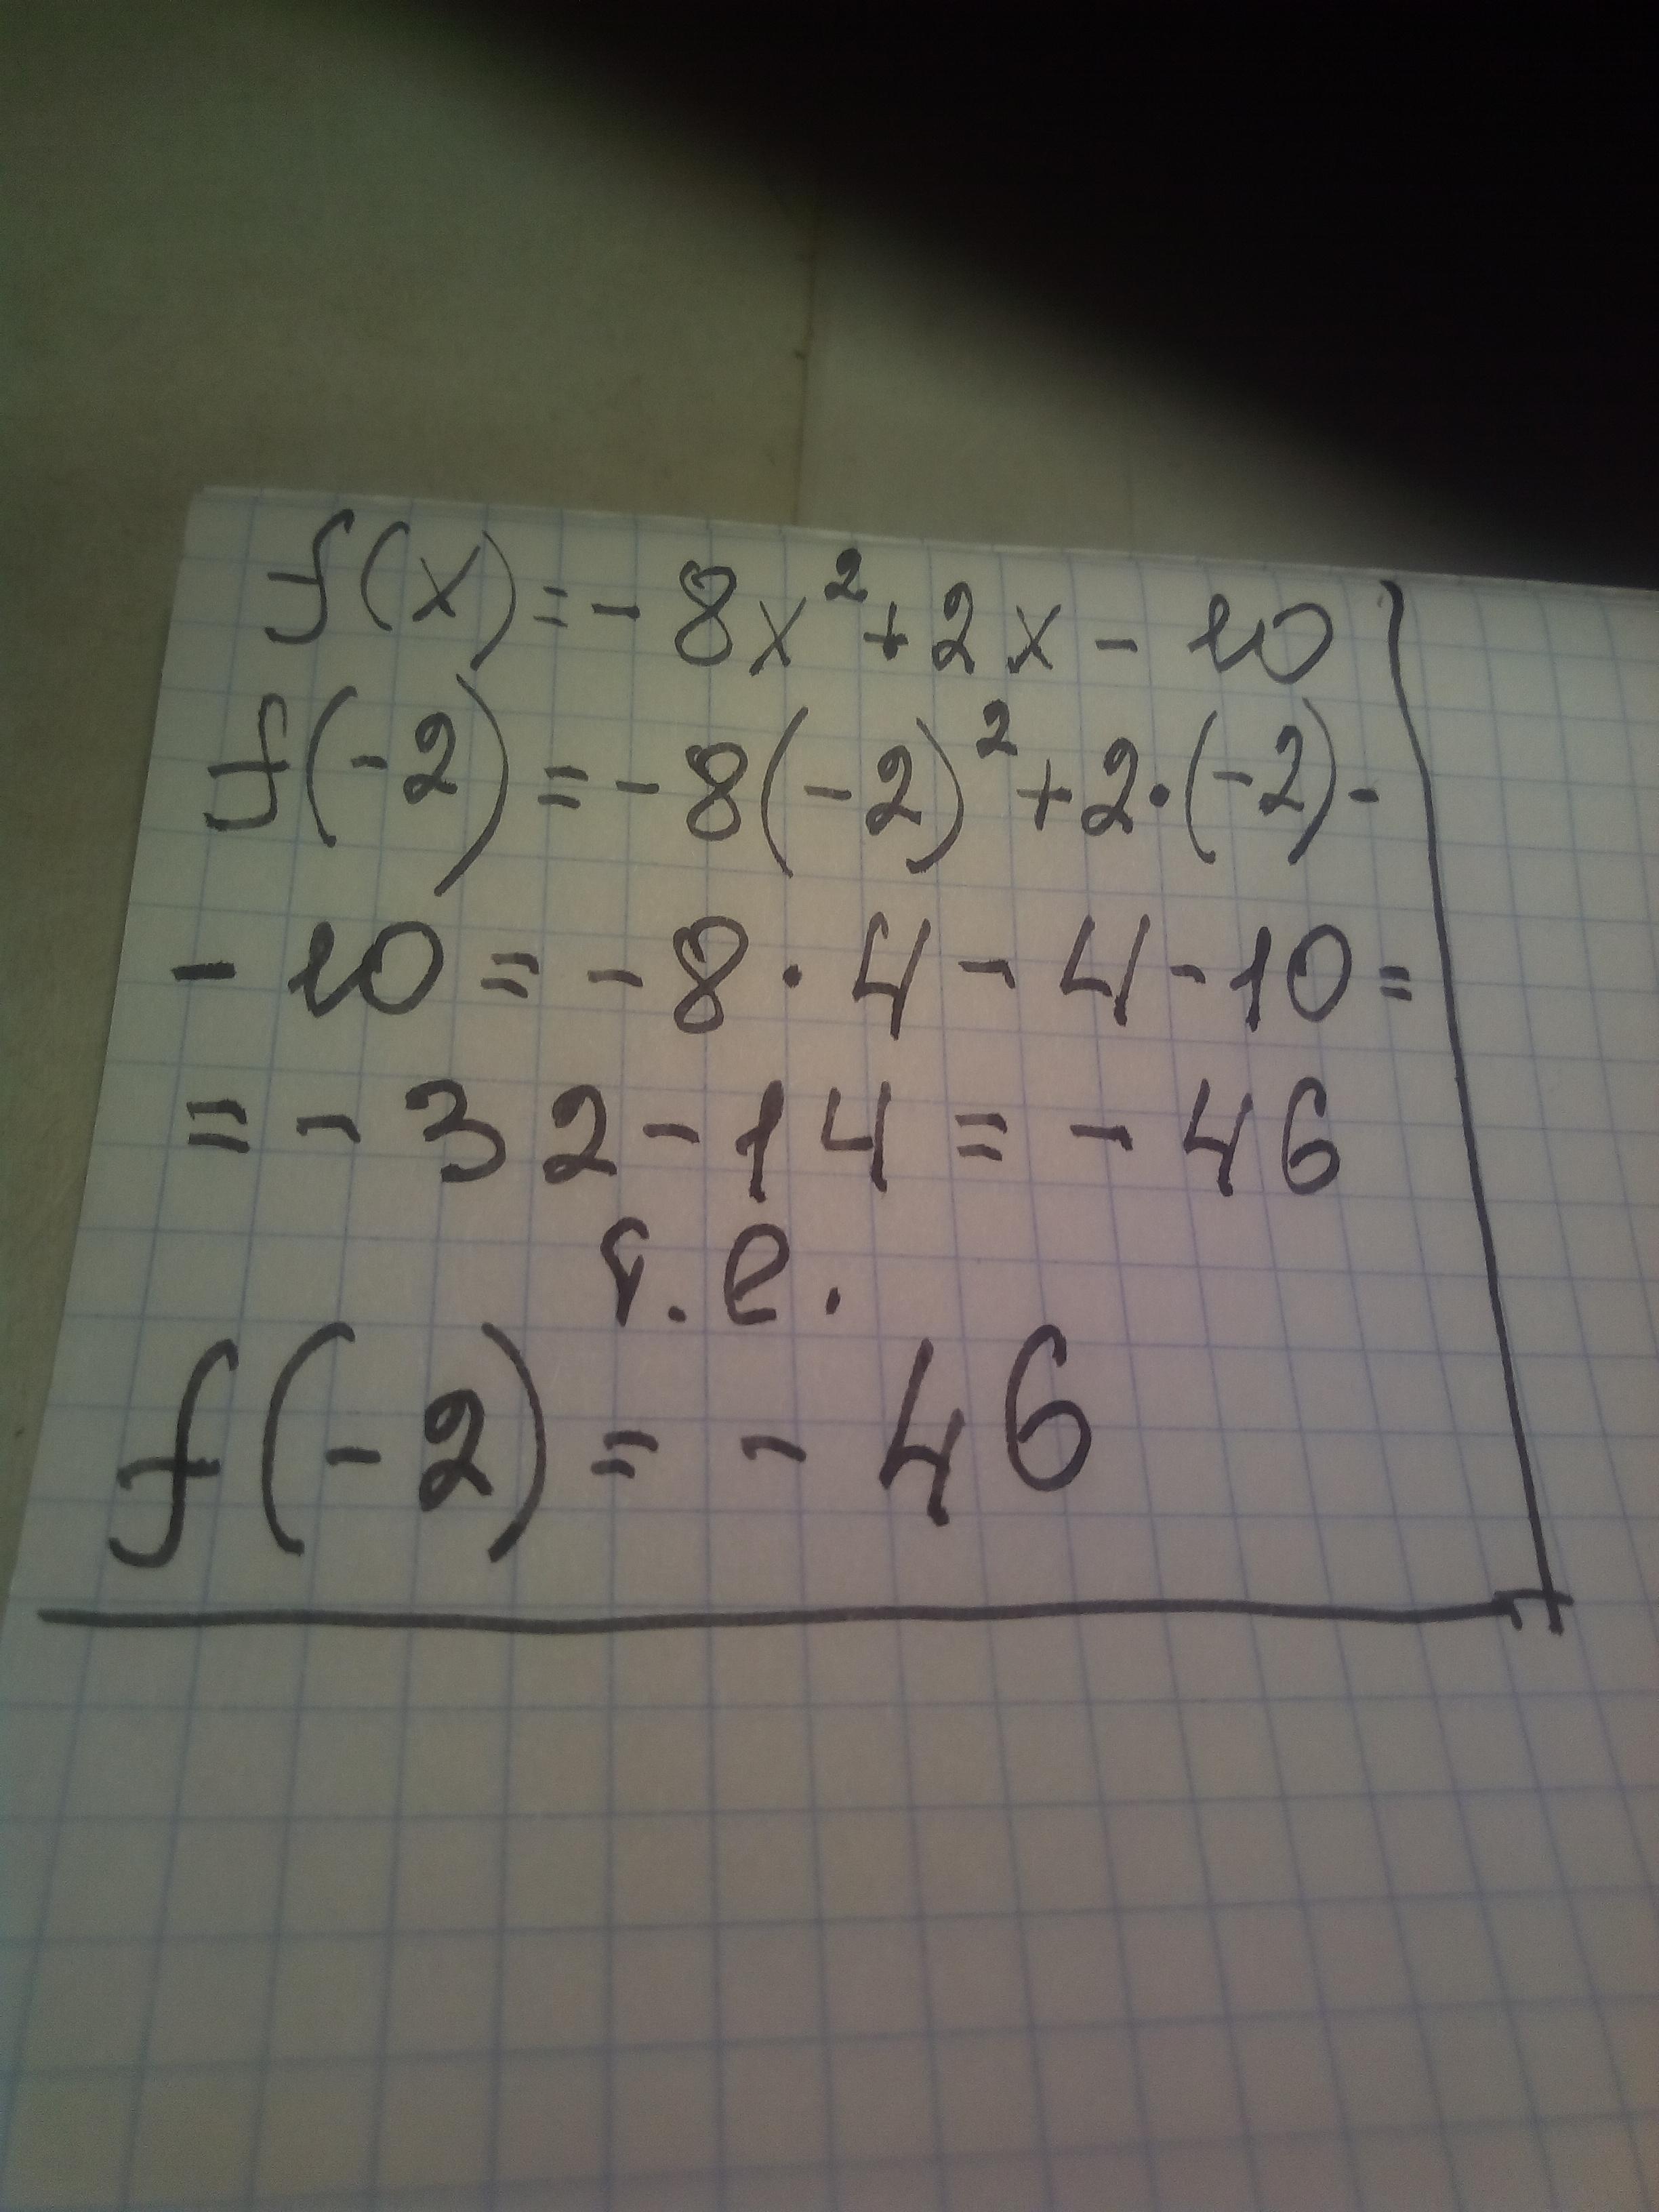 f(x)=-8x²+2x-10
f(-2)=-8(-2)²+2·(-2)-
-10=-8·4-4-10=
=-32-14=-46
т.е.
f(-2)=-46